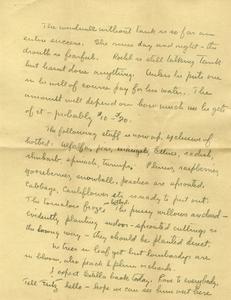 The windmill without tank is so far an
entire success. She runs day and night - the
drouth is fearful. Kohl is still talking tank
but hasnt done anything. Unless he puts one
in he will of course pay for his water. The
amount will depend on how much he gets
of it - probably $10 - 20.
The following stuff is now up, exclusive of
hotbed: Alfalfa, peas, mangels, lettuce, radish,
rhubarb, spinach, turnips. Plums, raspberries,
gooseberries, snowball, peaches are sprouted.
Cabbage, Cauliflower etc. ready to put out.
The tomatoes froze. The pussy willows are dead -
evidently planting undor- sprouted cuttings is
the wrong way - they should be planted direct.
No trees in leaf yet but lombardys are
in bloom, also peach & plum orchards.
I expect Estella back today. Love to everybody.
Tell Fritz hello - hope we can see him out here